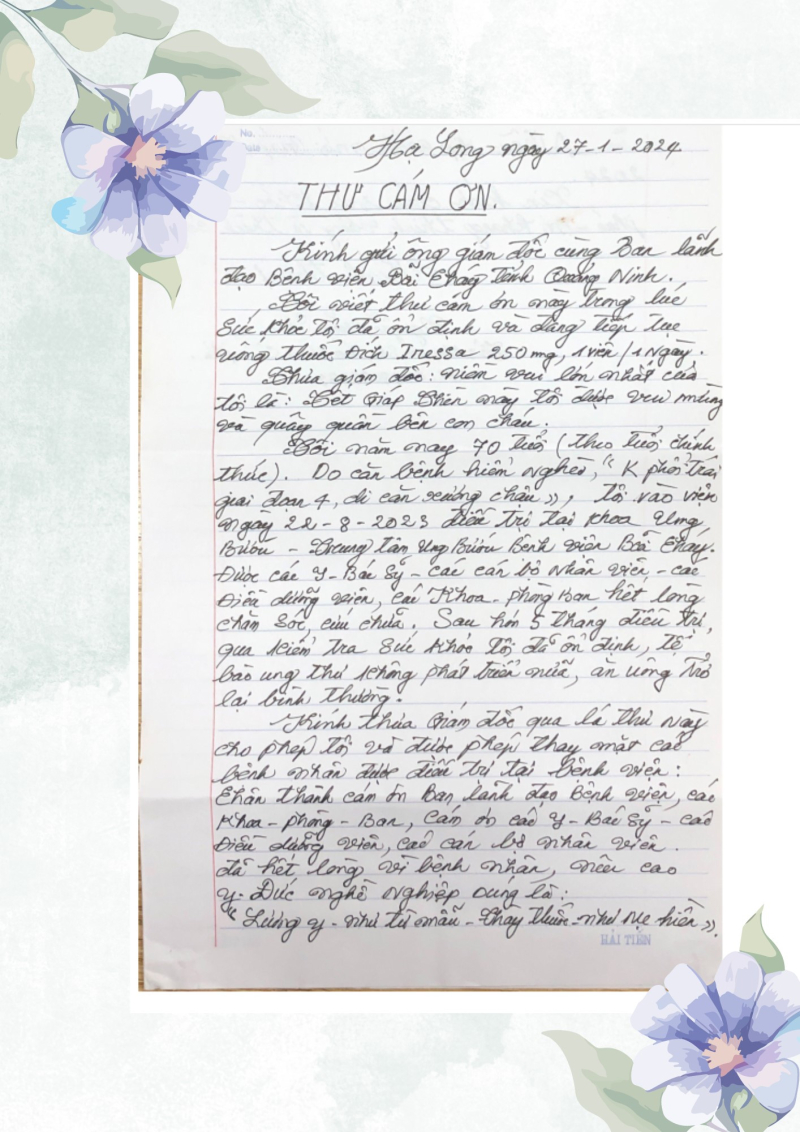 No.
Hạ Long ngày 27-1-2024
THƯ CÁM ƠN.
Kính gửi ông giám đốc cùng Ban lãnh
đạo Bệnh viện Bãi Cháy tỉnh Quảng Ninh.
Tôi viết thư cám ơn này trong lúc
sức khỏe tôi đã ổn định và đang tiếp tục
uống thuốc Đích Iressa 250mg, 1 viên / 1 ngày.
Thưa giám đốc: niềm vui lớn nhất của
tôi là: Tết Giáp Thìn này tôi được vui mừng
và quây quần bên con cháu.
Tôi năm nay 70 tuổi (theo tuổi chính
thức). Do căn bệnh hiểm nghèo, "K phổi trái
giai đoạn 4, di căn xương chậu", tôi vào viện
ngày 22-8-2023 điều trị tại khoa Ung
Bướu - Trung tâm Ung Bướu Bệnh viện Bãi Cháy.
Được các Y-Bác Sỹ - các cán bộ nhân viên - các
Điều dưỡng viên, các Khoa - phòng Ban hết lòng
chăm sóc, cứu chữa. Sau hơn 5 tháng điều trị,
qua kiểm tra sức khỏe tôi đã ổn định, tế
bào ung thư không phát triển nữa, ăn uống trở
lại bình thường.
Kính thưa Giám đốc qua lá thư này
cho phép tôi và được phép thay mặt các
bệnh nhân được điều trị tại bệnh viện:
Chân thành cám ơn Ban lãnh đạo Bệnh viện, các
Khoa - phòng - Ban, cám ơn các Y-Bác Sỹ - các
Điều dưỡng viên, các cán bộ nhân viên.
đã hết lòng vì bệnh nhân, nêu cao
y-Đức nghề nghiệp đúng là:
"Lương y - như từ mẫu - Thầy thuốc - như Mẹ hiền".
HẢI TIẾN